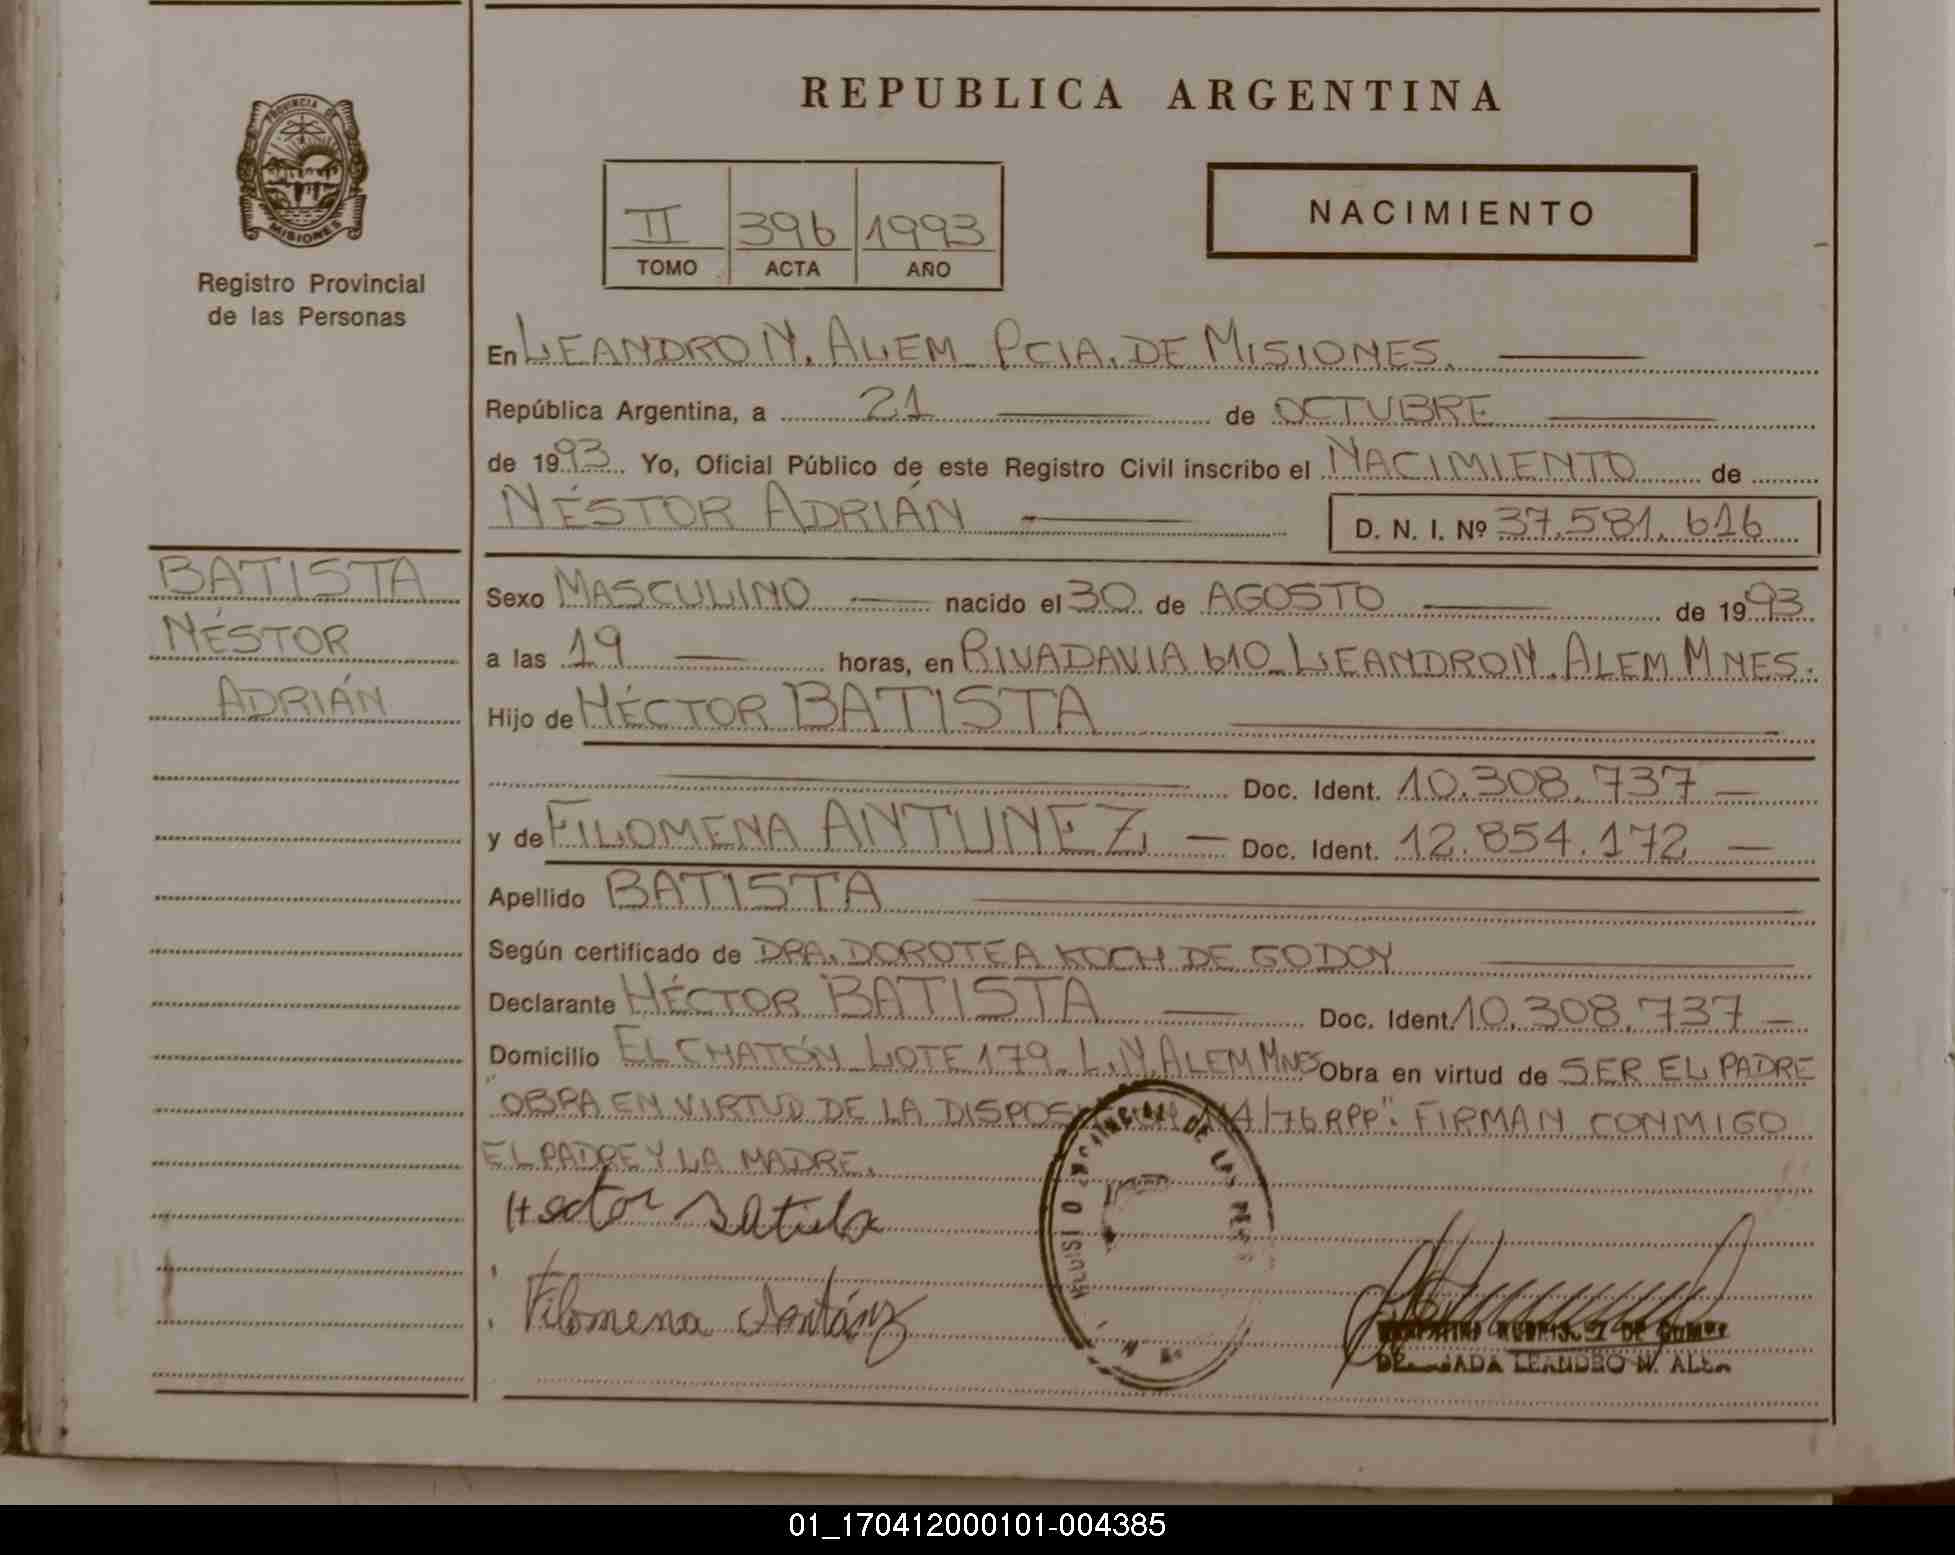 REPUBLICA ARGENTINA
PROVINCIA DE
MISIONES
Registro Provincial
de las Personas
II 396 1993
TOMO ACTA AÑO
NACIMIENTO
En LEANDRO N. ALEM PCIA. DE MISIONES.
República Argentina, a 21 de OCTUBRE
de 1993 Yo, Oficial Público de este Registro Civil inscribo el NACIMIENTO de
NÉSTOR ADRIÁN D. N. I. Nº 37.581.616
BATISTA
NÉSTOR
ADRIÁN
Sexo MASCULINO nacido el 30 de AGOSTO de 1993
a las 19 horas, en RIVADAVIA 610_LEANDRO N. ALEM MNES.
Hijo de HÉCTOR BATISTA
Doc. Ident. 10.308.737
y de FILOMENA ANTUNEZ Doc. Ident. 12.854.172
Apellido BATISTA
Según certificado de DRA. DOROTEA KOCH DE GODOY
Declarante HÉCTOR BATISTA Doc. Ident. 10.308.737
Domicilio EL CHATÓN_LOTE 179_L.N.ALEM MNES Obra en virtud de SER EL PADRE
"OBRA EN VIRTUD DE LA DISPOSICION 114/76 RPP". FIRMAN CONMIGO
EL PADRE Y LA MADRE.
Hector Batista
Filomena
DE GOMEZ
LEANDRO N. ALEM
01_170412000101-004385